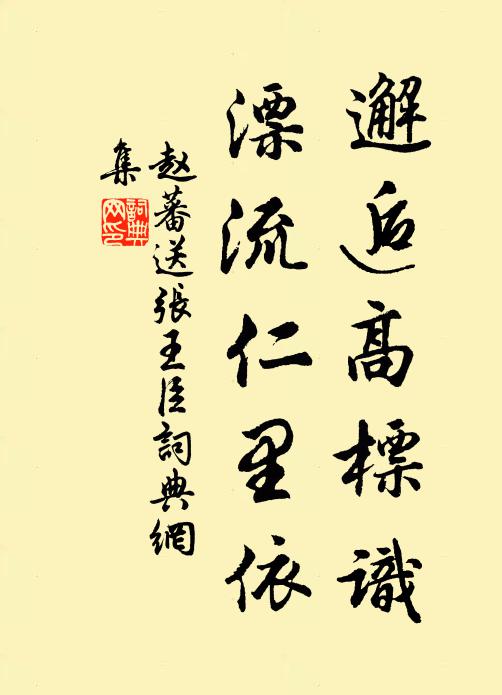 邂逅高標識
漂流仁里依
赵蕃送張王臣詞典網
集
詞典网印